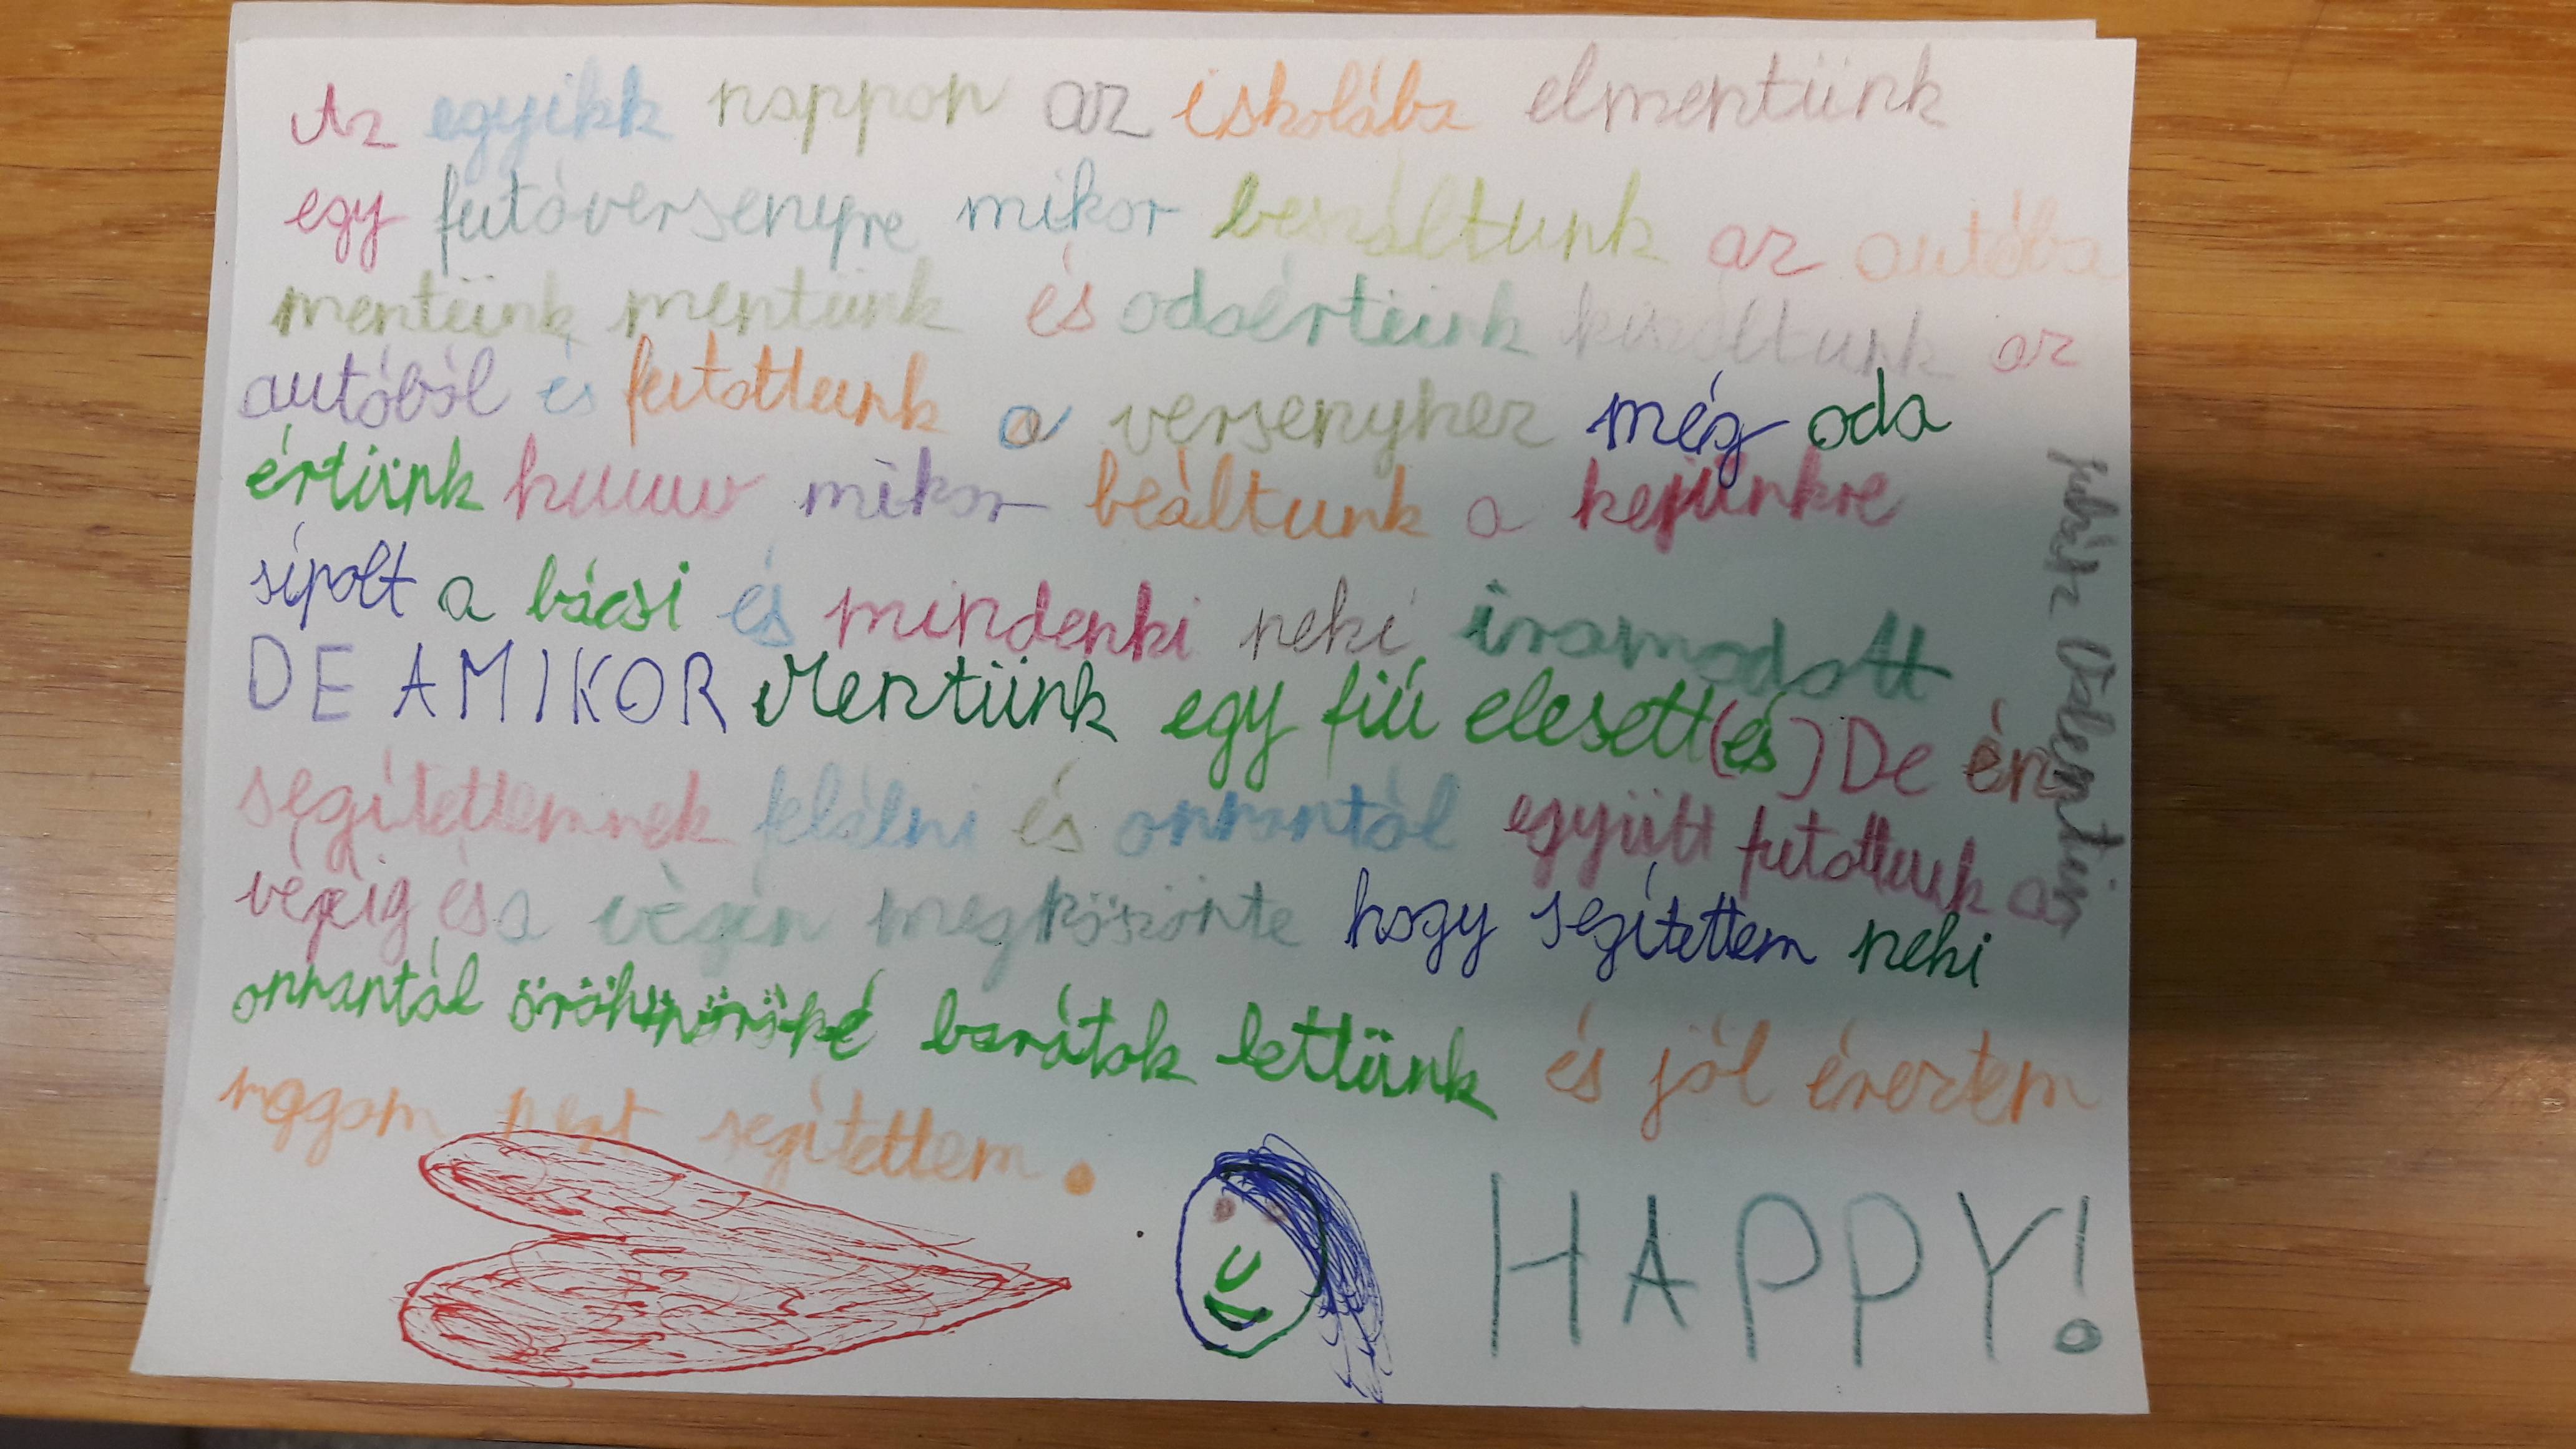 Az egyikk nappon az iskolába elmentünk
egy futóversenyre mikor beszáltunk az autóba
mentünk mentünk és odaértünk kiszáltunk az
autóból és futottunk a versenyhez még oda
értünk huuuu mikor beáltunk a kejünkre
sípolt a bácsi és mindenki neki iramodott
DE AMIKOR Mentünk egy fiú elesett(és) De én
segítettemnek felálni és onnantól együtt futottunk
végig és a végén megköszönte hogy segítettem neki
onnantól barátok lettünk és jól éreztem
magam segítettem.
HAPPY!
Juhász Valentin